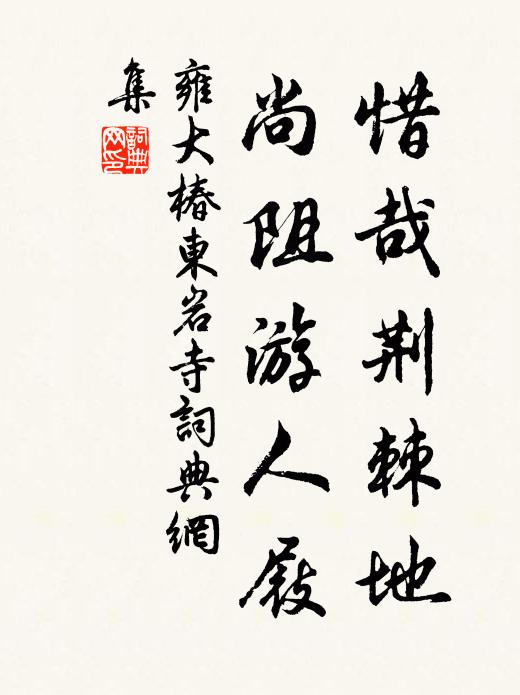 惜哉荆棘地
尚阻游人屐
雍大椿東岩寺詞典網
集
詞典
网印